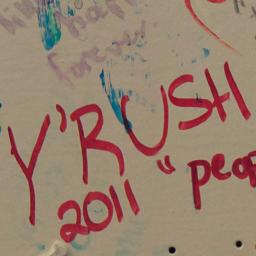 forever
Y'RUSH
2011 " peop